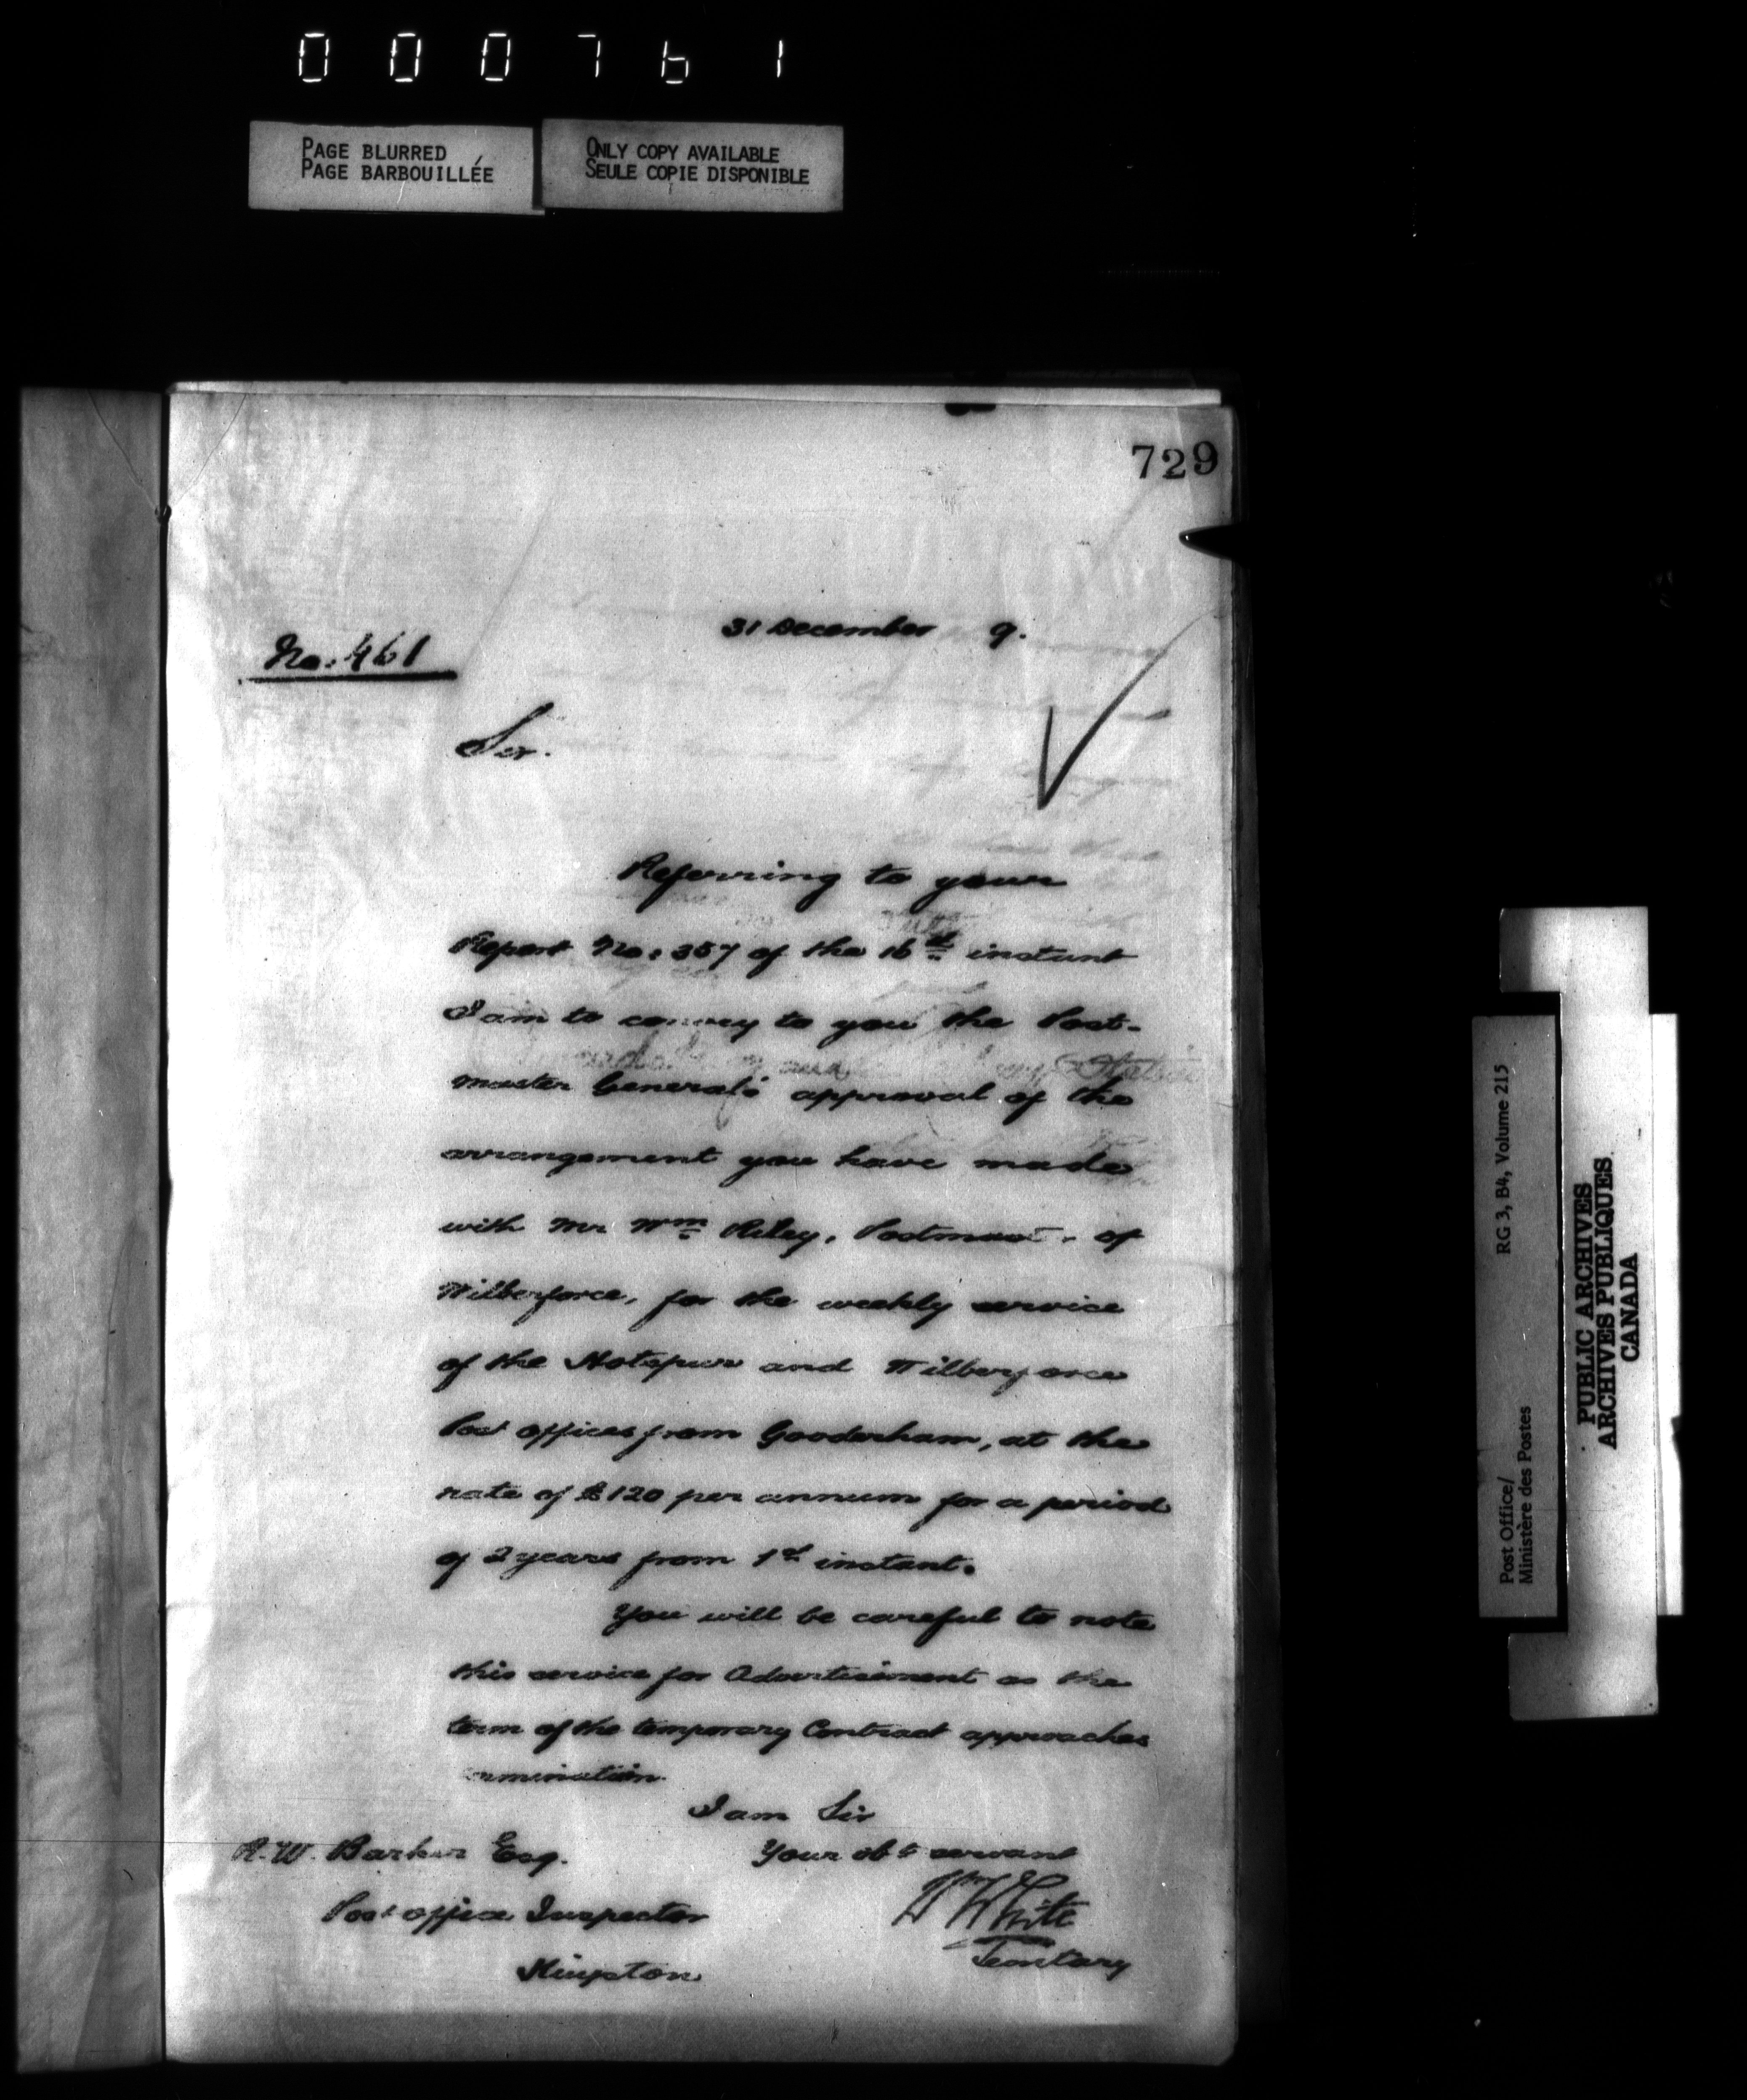 000761
PAGE BLURRED
PAGE BARBOUILLÉE
ONLY COPY AVAILABLE
SEULE COPIE DISPONIBLE
729
31 December 9.
No: 461
Sir.
Referring to your
Report No: 357 of the 16th instant
I am to convey to you the Post-
master General's approval of the
arrangement you have made
with Mr Wm Riley, Postmast . of
Wilberforce, for the weekly service
of the Hotspur and Wilberforce
Post offices from Gooderham, at the
rate of $120 per annum for a period
of 2 years from 1st instant.
You will be careful to note
this service for Advertisement as the
term of the temporary Contract approaches
termination.
I am Sir
Your obt servant
R. W. Barker Esq.
Post office Inspector
Kingston
W White
Secretary
Post Office/
Ministère des Postes
RG 3, B4, Volume 215
PUBLIC ARCHIVES
ARCHIVES PUBLIQUES
CANADA